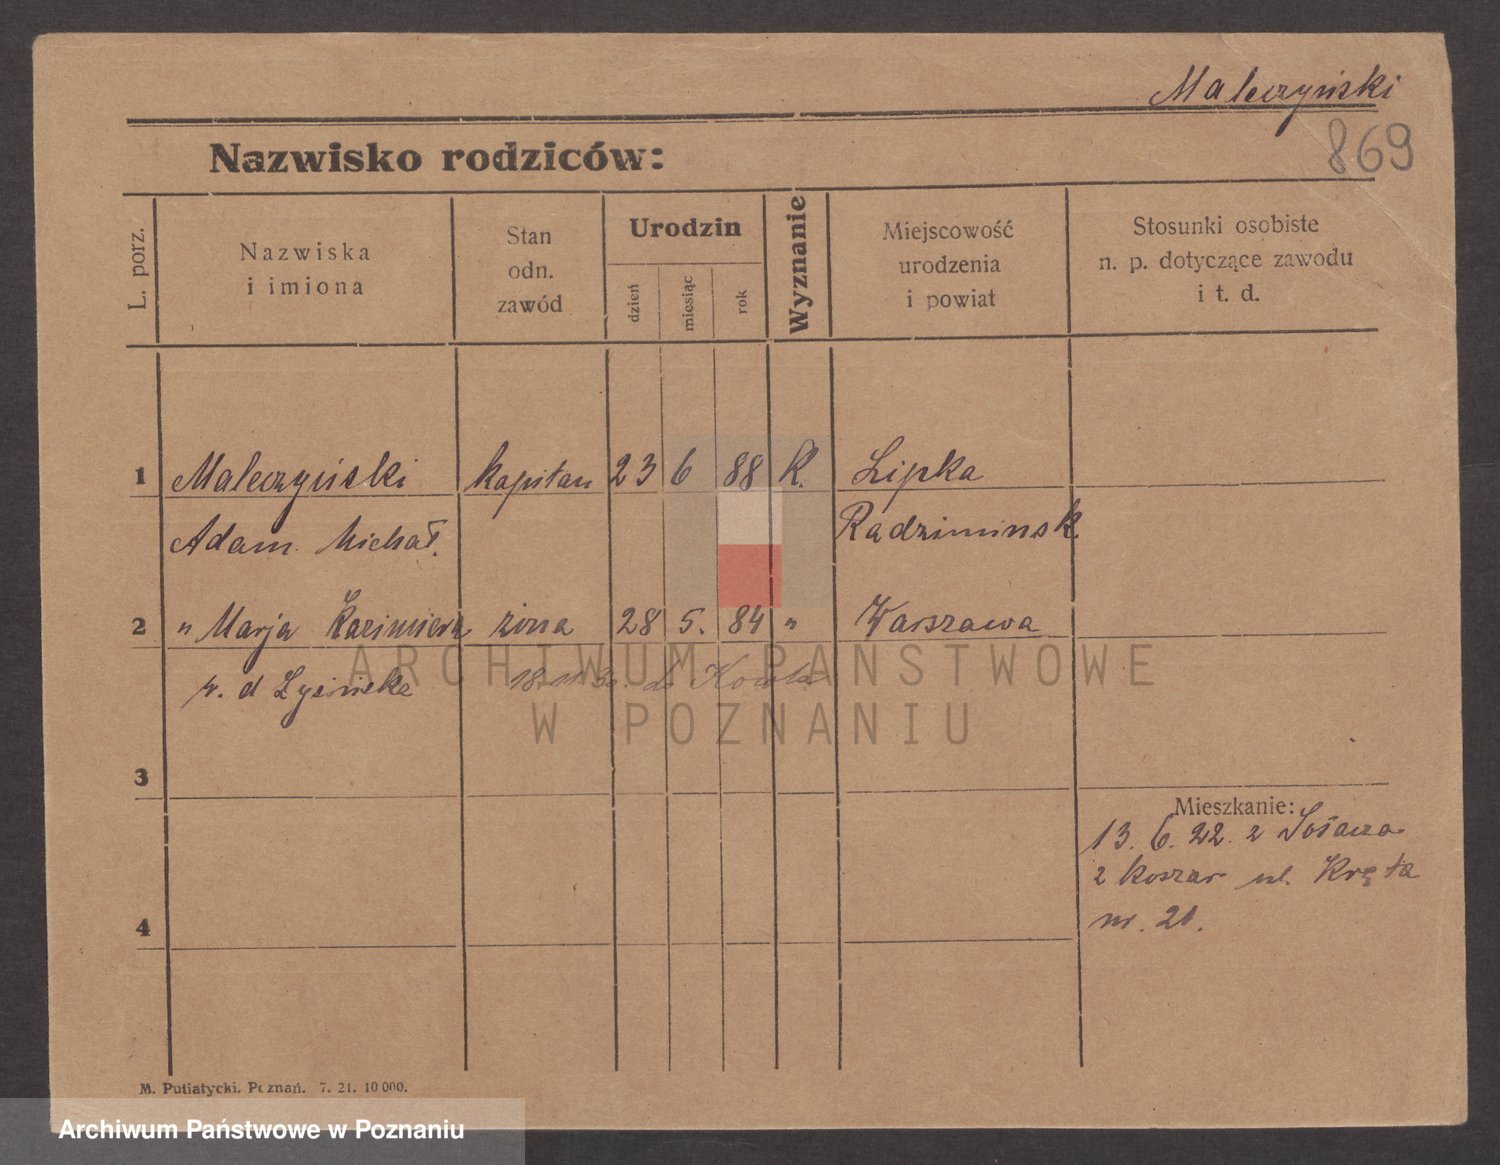 Maleczyński
869
Nazwisko rodziców:
L. porz.
Nazwiska
i imiona
Stan
odn.
zawód
Urodzin
dzień
miesiąc
rok
Wyznanie
Miejscowość
urodzenia
i powiat
Stosunki osobiste
n. p. dotyczące zawodu
i t. d.
1 Maleczyński kapitan 23 6 88 K. Lipka
Adam Michał. Radziminsk
2 " Marja Kazimiera żona 28 5. 84 " Warszawa
z. d Łysińska 18. 11 30. do Kowla
3
Mieszkanie:
13. 6. 22. z Sołacza
z koszar ul. Kręta
nr. 21.
4
M. Putiatycki. Poznań. 7. 21. 10 000.
ARCHIWUM PAŃSTWOWE
W POZNANIU
Archiwum Państwowe w Poznaniu